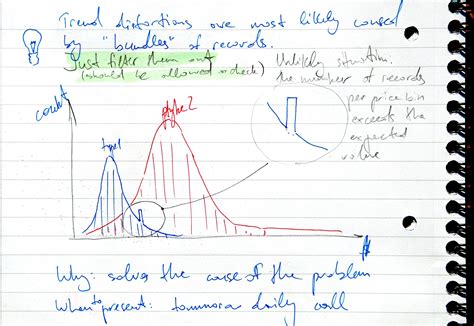 Trend distortions are most likely caused
by "bundles" of records.
Just filter them out
(should be allowed to check)
Unlikely situation.
the number of records
per price bin
exceeds the
expected
value
count
type 1
type 2
$
Why: solves the cause of the problem
When to present: tomorrow daily call